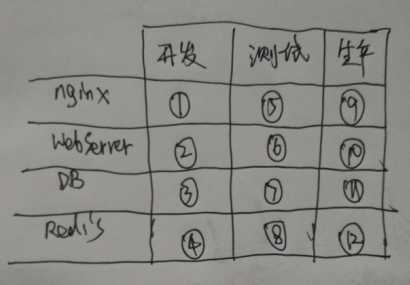 开发 测试 生产
nginx ① ⑤ ⑨
WebServer ② ⑥ ⑩
DB ③ ⑦ ⑪
Redis ④ ⑧ ⑫